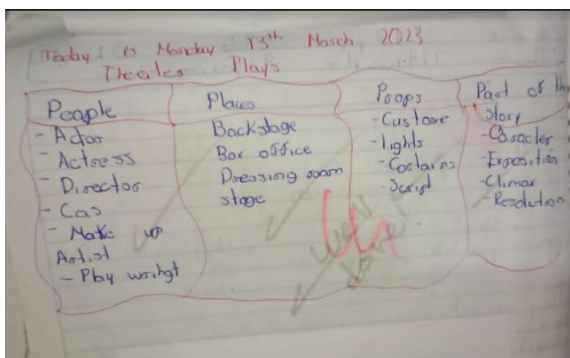 Today: is Monday 13th March 2023
Theater Plays
People
- Actor
- Actress
- Director
- Cas
- Make up
Artist
- Play wrihgt
Places
Backstage
Box office
Dressing room
stage
Props
- Custome
- lights
- Costains
- Script
Part of the
story
- Caracter
- Exposition
- Climax
- Resolution
Well
done!